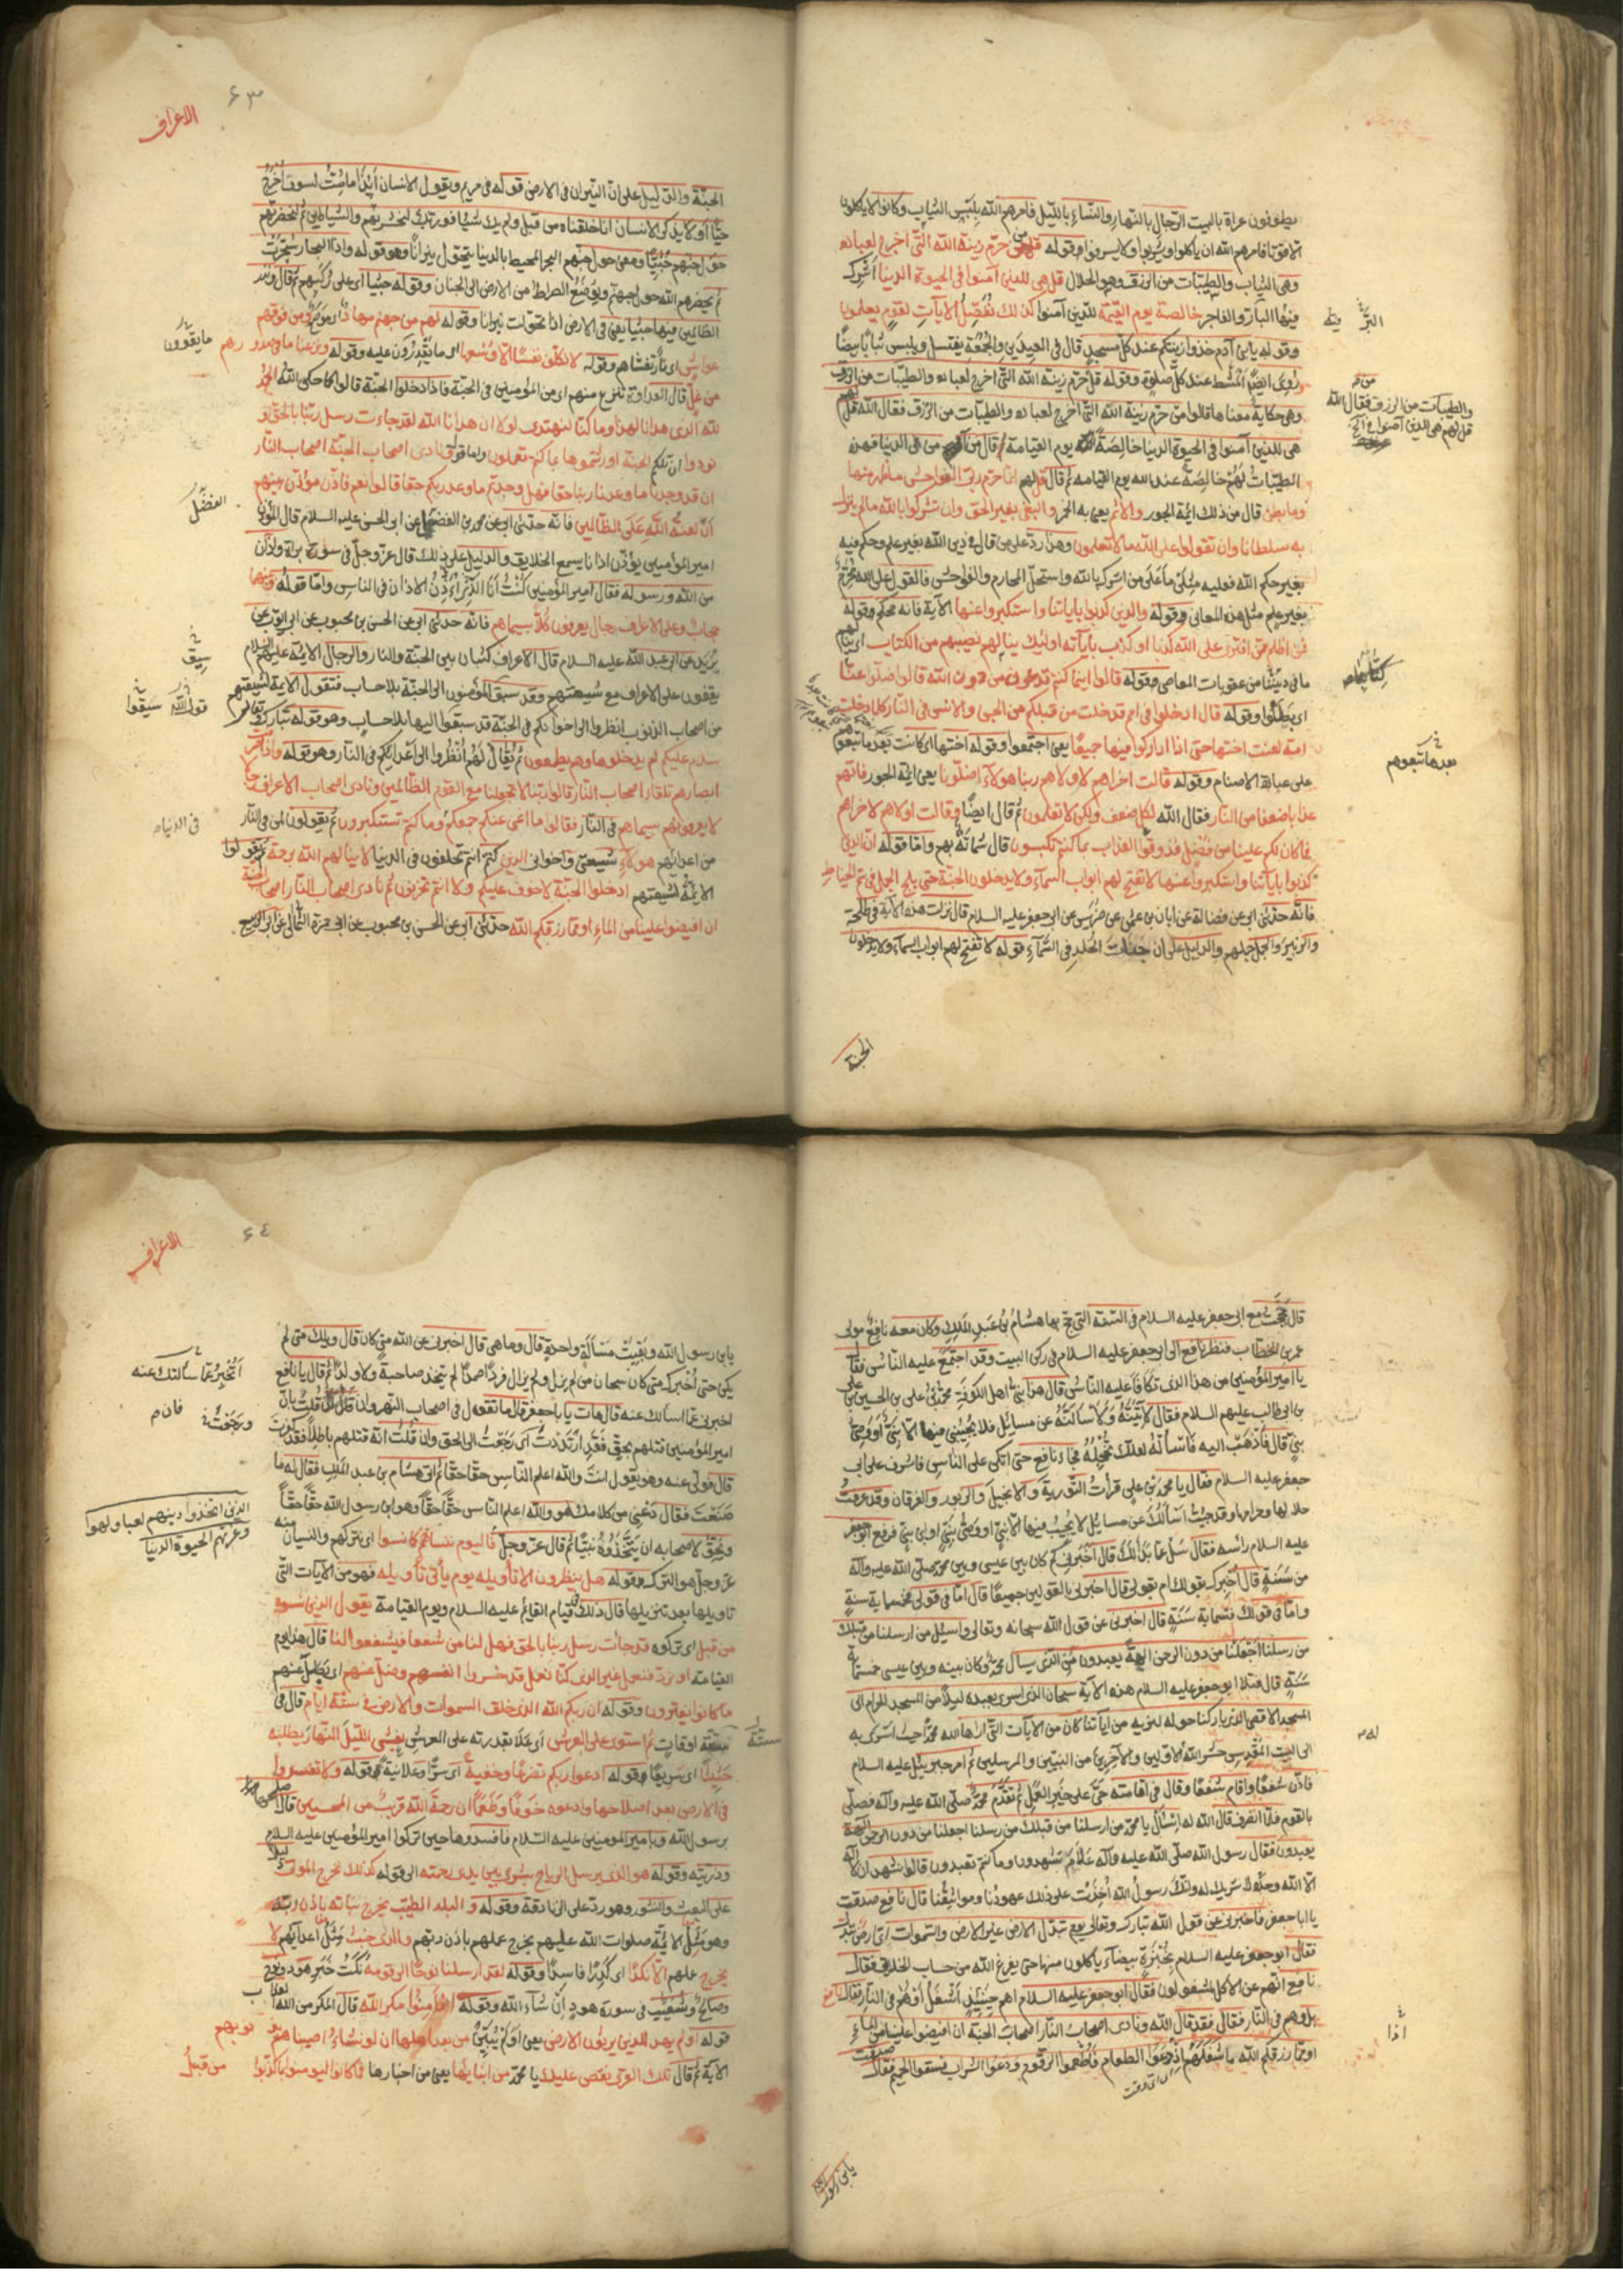 يطوفون عراة بالبيت الرجال بالنهار والنساء بالليل فامرهم الله بلبس الثياب وكانوا لا ياكلون
الا قوتا فامرهم الله ان ياكلوا ويشربوا ولا يسرفوا وقوله قل من حرم زينة الله التي اخرج لعباده
وهي الثياب والطيبات من الرزق وهو الحلال قل هي للذين آمنوا في الحيوة الدنيا اشرك
فيها البار والفاجر خالصة يوم القيمة للذين آمنوا كذلك نفصل الآيات لقوم يعلمون
وقوله يا بني آدم خذوا زينتكم عند كل مسجد قال في العيدين والجمعة يغتسل ويلبس ثيابا بيضا
وروي ايضا المشط عند كل صلوة وقوله قل من حرم زينة الله التي اخرج لعباده والطيبات من الرزق
وهي حكاية معناها قالوا من حرم زينة الله التي اخرج لعباده والطيبات من الرزق فقال الله قل لهم
هي للذين آمنوا في الحيوة الدنيا خالصة يوم القيامة قال من في الدنيا فهذه
الطيبات لهم خالصة عند الله يوم القيامه ثم قال قل لهم انما حرم ربي الفواحش ما ظهر منها
وما بطن قال من ذلك ائمة الجور والاثم يعني به الخمر والبغي بغير الحق وان تشركوا بالله ما لم ينزل
به سلطانا وان تقولوا على الله ما لا تعلمون وهذا رد على من قال في دين الله بغير علم وحكم فيه
بغير حكم الله فعليه مثل ما على من اشرك بالله واستحل المحارم والفواحش فالقول على الله محرم
بغير علم مثل هذه المعاني وقوله والذين كذبوا باياتنا واستكبروا عنها الآية فانه محكم وقوله
فمن اظلم ممن افترى على الله كذبا او كذب بآياته اولئك ينالهم نصيبهم من الكتاب اي ينالهم
ما في ديننا من عقوبات المعاصي وقوله قالوا اينما كنتم تدعون من دون الله قالوا ضلوا عنا
اي بطلوا وقوله قال ادخلوا في امم قد خلت من قبلكم من الجن والانس في النار كلما دخلت
امة لعنت اختها حتى اذا اداركوا فيها جميعا يعني اجتمعوا وقوله اختها اي كانت بعدها تبعوهم
على عبادة الاصنام وقوله قالت اخراهم لاولاهم ربنا هولاء اضلونا يعني ائمة الجور فاتهم
عذابا ضعفا من النار فقال الله لكل ضعف ولكن لا تعلمون ثم قال ايضا وقالت اولاهم لاخراهم
فما كان لكم علينا من فضل فذوقوا العذاب بما كنتم تكسبون قال شماتة بهم واما قوله ان الذين
كذبوا باياتنا واستكبروا عنها لا تفتح لهم ابواب السمآء ولا يدخلون الجنة حتى يلج الجمل في سم الخياط
فانه حدثني ابي عن فضالة عن ابان بن عثمن عن ضريس عن ابي جعفر عليه السلام قال نزلت هذه الآية في طلحة
والزبير والجمل جملهم والدليل على ان جنات الخلد في السمآء قوله لا تفتح لهم ابواب السمآء ولا يدخلون
الجنة
البر
والطيبات من الرزق فقال الله
قل لهم هي للذين آمنوا في
بعدها تبعوهم
٦٣
الاعراف
الجنة والدليل على ان النيران في الارض قوله في مريم ويقول الانسان أئذا ما مت لسوف اخرج
حيا اولا يذكر الانسان انا خلقناه من قبل ولم يك شيئا فوربك لنحشرنهم والشياطين ثم لنحضرنهم
حول جهنم جثيا ومعنى حول جهنم البحر المحيط بالدنيا يتحول نيرانا وهو قوله واذا البحار سجرت
ثم يحضرهم الله حول جهنم ويوضع الصراط من الارض الى الجنان وقوله جثيا اي على ركبهم ثم قال ونذر
الظالمين فيها جثيا يعني في الارض اذا تحولت نيرانا وقوله لهم من جهنم مهاد اي موضع ومن فوقهم
غواش اي نار تغشاهم وقوله لا نكلف نفسا الا وسعها اي ما يقدرون عليه وقوله ونزعنا ما في صدورهم
من غل قال العداوة تنزع منهم اي من المؤمنين في الجنة فاذا دخلوا الجنة قالوا كما حكى الله الحمد
لله الذي هدانا لهذا وما كنا لنهتدي لولا ان هدانا الله لقد جاءت رسل ربنا بالحق و
نودوا ان تلكم الجنة اورثتموها بما كنتم تعملون واما قوله ونادى اصحاب الجنة اصحاب النار
ان قد وجدنا ما وعدنا ربنا حقا فهل وجدتم ما وعد ربكم حقا قالوا نعم فاذن مؤذن بينهم
ان لعنة الله على الظالمين فانه حدثني ابي عن محمد بن الفضيل عن ابي الحسن عليه السلام قال المؤذن
امير المؤمنين يؤذن اذانا يسمع الخلايق والدليل على ذلك قال عز وجل في سورة براة واذان
من الله ورسوله فقال امير المؤمنين كنت انا الاذان في الناس واما قوله وبينهما
حجاب وعلى الاعراف رجال يعرفون كلا بسيماهم فانه حدثني ابي عن الحسن بن محبوب عن ابي ايوب عن
بريد عن ابي عبد الله عليه السلام قال الاعراف كثبان بين الجنة والنار والرجال الائمة عليهم السلام
يقفون على الاعراف مع شيعتهم وقد سبق المؤمنون الى الجنة بلا حساب فتقول الائمة لشيعتهم
من اصحاب الذنوب انظروا الى اخوانكم في الجنة قد سبقوا اليها بلا حساب وهو قوله تبارك وتعالى
سلام عليكم لم يدخلوها وهم يطمعون ثم يقال لهم انظروا الى اعدآئكم في النار وهو قوله واذا صرفت
ابصارهم تلقاء اصحاب النار قالوا ربنا لا تجعلنا مع القوم الظالمين ونادى اصحاب الاعراف رجالا
يعرفونهم بسيماهم في النار فقالوا ما اغنى عنكم جمعكم وما كنتم تستكبرون ثم يقولون لمن في النار
من اعدائهم هولاء شيعتي واخواني الذين كنتم انتم تحلفون في الدنيا لا ينالهم الله برحمة ثم يقولوا
الائمة لشيعتهم ادخلوا الجنة لا خوف عليكم ولا انتم تحزنون ثم نادى اصحاب النار اصحاب الجنة
ان افيضوا علينا من الماء او مما رزقكم الله حدثني ابي عن الحسن بن محبوب عن ابي حمزة الثمالي عن ابي الربيع
ما يقوون
الفضل
سيق
قوله سيقوا
في الدنيا
قال حججت مع ابي جعفر عليه السلام في السنة التي حج بها هشام بن عبد الملك وكان معه نافع مولى
عمر بن الخطاب فنظر نافع الى ابي جعفر عليه السلام في ركن البيت وقد اجتمع عليه الناس فقال
يا امير المؤمنين من هذا الذي تكافا عليه الناس قال هذا نبي اهل الكوفة محمد بن علي بن الحسين بن علي
بن ابي طالب عليهم السلام فقال لاتينه ولاسالنه عن مسائل فلا يجيبني فيها الا نبي او وصي
نبي قال فاذهب اليه فاساله لعلك تخجله فجاء نافع حتى اتكى على الناس فاشرف على ابي
جعفر عليه السلام فقال يا محمد بن علي قرات التورية والانجيل والزبور والفرقان وقد عرفت
حلالها وحرامها وقد جئت اسالك عن مسائل لا يجيب فيها الا نبي او وصي نبي او ابن نبي فرفع ابو جعفر
عليه السلام راسه فقال سل عما بدا لك قال اخبرني كم كان بين عيسى وبين محمد صلى الله عليه وآله
من سنة قال اخبرك بقولك ام بقولي قال اخبرني بالقولين جميعا قال اما في قولي فخمسماية سنة
واما في قولك فستماية سنة قال اخبرني عن قول الله سبحانه وتعالى واسئل من ارسلنا من قبلك
من رسلنا اجعلنا من دون الرحمن الهة يعبدون من الذي سال محمد وكان بينه وبين عيسى خمسماية
سنة قال فتلا ابو جعفر عليه السلام هذه الآية سبحان الذي اسرى بعبده ليلا من المسجد الحرام الى
المسجد الاقصى الذي باركنا حوله لنريه من آياتنا كان من الآيات التي اراها الله محمدا حيث اسرى به
الى البيت المقدس حشر الله الاولين والآخرين من النبيين والمرسلين ثم امر جبرئيل عليه السلام
فاذن شفعا واقام شفعا وقال في اقامته حي على خير العمل ثم تقدم محمد صلى الله عليه وآله فصلى
بالقوم فلما انصرف قال الله له اسئل يا محمد من ارسلنا من قبلك من رسلنا اجعلنا من دون الرحمن الهة
يعبدون فقال رسول الله صلى الله عليه وآله علام تشهدون وما كنتم تعبدون قالوا نشهد ان لا اله
الا الله وحده لا شريك له وانك رسول الله اخذت على ذلك عهودنا ومواثيقنا قال نافع صدقت
يا ابا جعفر فاخبرني عن قول الله تبارك وتعالى يوم تبدل الارض غير الارض والسموات اي ارض تبدل
فقال ابو جعفر عليه السلام بخبزة بيضآء ياكلون منها حتى يفرغ الله من حساب الخلايق فقال
نافع انهم عن الاكل لمشغولون فقال ابو جعفر عليه السلام اهم حينئذ اشغل او هم في النار فقال نافع
بل وهم في النار فقال فقد قال الله ونادى اصحاب النار اصحاب الجنة ان افيضوا علينا من الماء
او مما رزقكم الله ما شغلهم اذ دعوا الطعام فاطعموا الزقوم ودعوا الشراب فسقوا الحميم فقال صدقت
يا بن رسول الله
له
اذا
٦٤
الاعراف
يا بن رسول الله وبقيت مسالة واحدة قال وما هي قال اخبرني عن الله متى كان قال ويلك متى لم
يكن حتى اخبرك متى كان سبحان من لم يزل ولم يزال فردا صمدا لم يتخذ صاحبة ولا ولدا ثم قال يا نافع
اخبرني عما اسالك عنه قال هات يا با جعفر قال ما تقول في اصحاب النهروان فان قلت بان
امير المؤمنين قتلهم بحق فقد ارتددت اي رجعت الى الحق وان قلت انه قتلهم باطلا فقد كفرت
قال فولى عنه وهو يقول انت والله اعلم الناس حقا حقا ثم اتى هشام بن عبد الملك فقال له ما
صنعت فقال دعني من كلامك هو والله اعلم الناس حقا حقا وهو ابن رسول الله حقا حقا
ويحق لاصحابه ان يتخذوه نبيا ثم قال عز وجل فاليوم ننساهم كما نسوا اي نتركهم والنسيان منه
عز وجل هو الترك وقوله هل ينظرون الا تأويله يوم ياتي تأويله فهو من الآيات التي
تاويلها بعد تنزيلها قال ذلك في قيام القائم عليه السلام ويوم القيامة يقول الذين نسوه
من قبل اي تركوه قد جاءت رسل ربنا بالحق فهل لنا من شفعا فيشفعوا لنا قال هذا يوم
القيامة او نرد فنعمل غير الذي كنا نعمل قد خسروا انفسهم وضل عنهم اي بطل عنهم
ما كانوا يفترون وقوله ان ربكم الله الذي خلق السموات والارض في ستة ايام قال في
ستة اوقات ثم استوى على العرش اي علا بقدرته على العرش يغشى الليل النهار يطلبه
حثيثا اي سريعا وقوله ادعوا ربكم تضرعا وخفية اي سرا وعلانية وقوله ولا تفسدوا
في الارض بعد اصلاحها وادعوه خوفا وطمعا ان رحمة الله قريب من المحسنين قال اصلحها
برسول الله وبامير المومنين عليه السلام فافسدوها حين تركوا امير المؤمنين عليه السلام
وذريته وقوله هو الذي يرسل الرياح بشرى بين يدي رحمته الى قوله كذلك نخرج الموتى دليل
على البعث والنشور وهو رد على الزنادقة وقوله والبلد الطيب يخرج نباته باذن ربه
وهو مثل الائمة صلوات الله عليهم يخرج علمهم باذن ربهم والذي خبث مثل اعدآئهم لا
يخرج علمهم الا نكدا اي كدرا فاسدا وقوله لقد ارسلنا نوحا الى قومه نكتب خبر هود ونوح
وصالح وشعيب في سورة هود ان شآء الله وقوله افامنوا مكر الله قال المكر من الله العذاب
قوله اولم يهد للذين يرثون الارض يعني اولم يبين من بعد اهلها ان لو نشاء اصبناهم بذنوبهم
الآية ثم قال تلك القرى نقص عليك يا محمد من انبائها يعني من اخبارها فما كانوا ليومنوا بما كذبوا من قبل
اتخبر عما سالتك عنه
فان
ورجعت
الذين اتخذوا دينهم لعبا ولهوا
وغرتهم الحيوة الدنيا
ستة